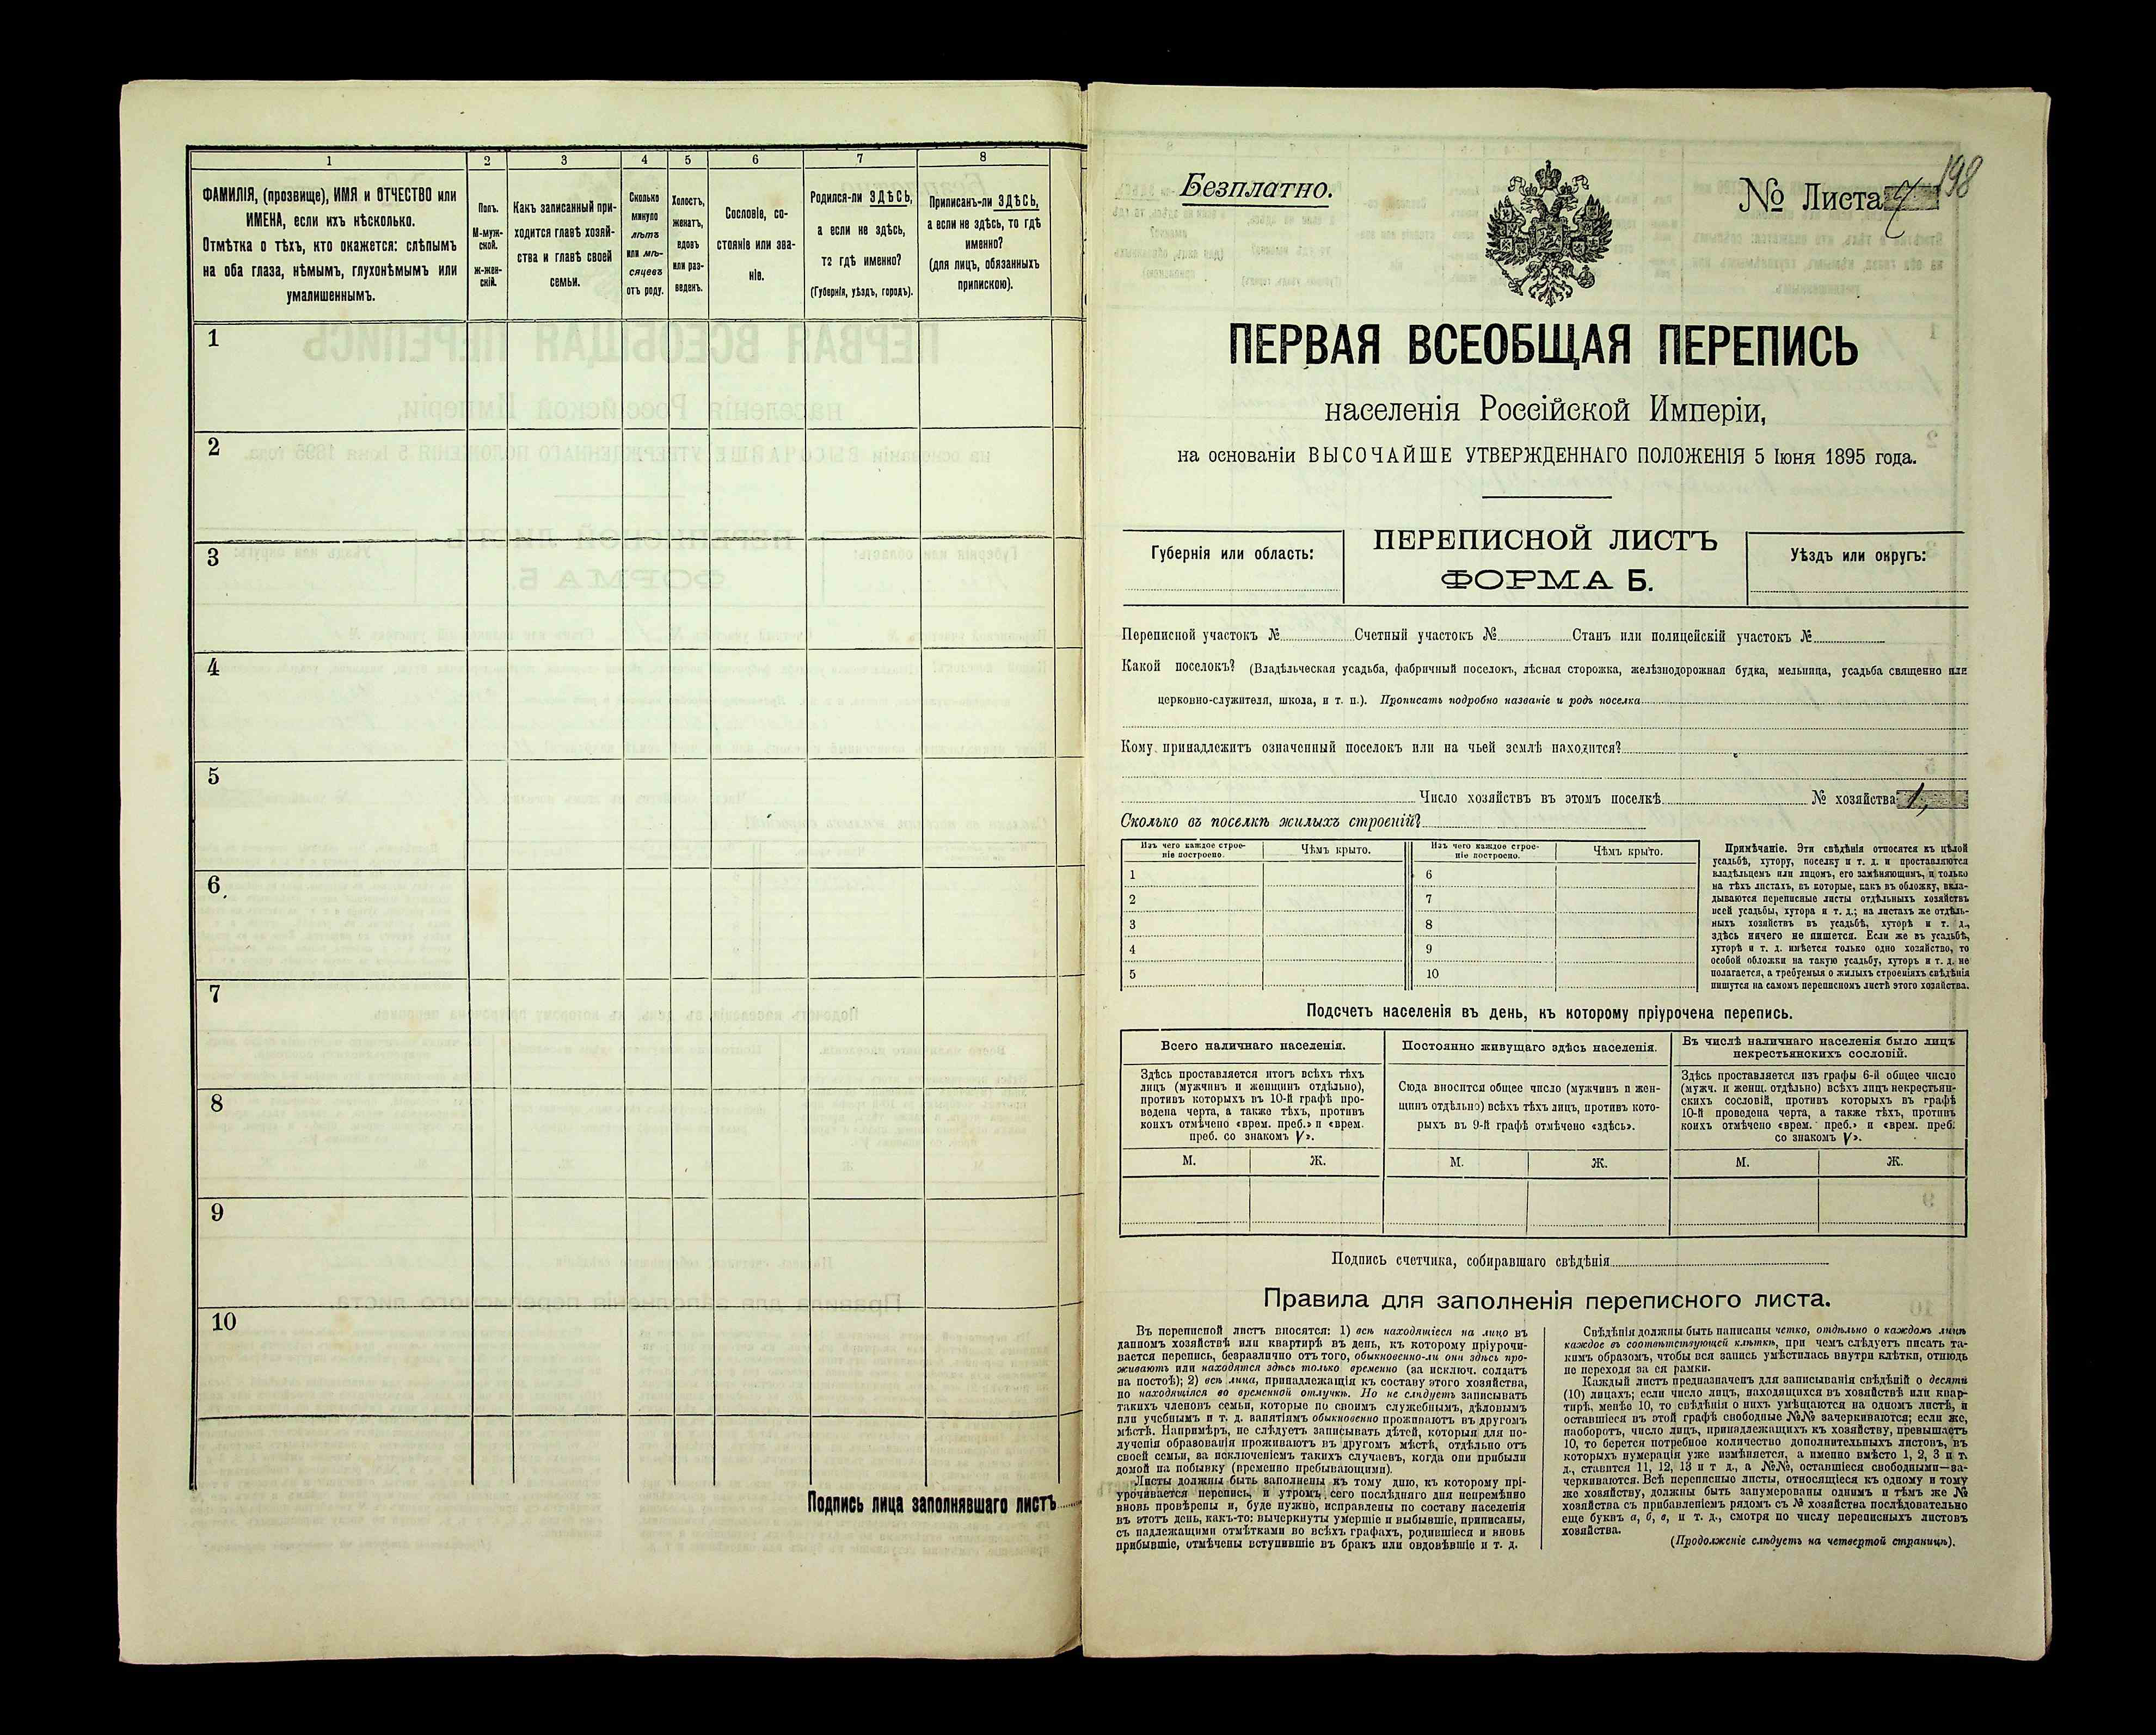 1 2 3 4 5 6 7 8
ФАМИЛІЯ, (прозвище), ИМЯ и ОТЧЕСТВО или
ИМЕНА, если ихъ нѣсколько.
Отмѣтка о тѣхъ, кто окажется: слѣпымъ
на оба глаза, нѣмымъ, глухонѣмымъ или
умалишеннымъ.
Полъ.
М-муж-
ской.
ж-жен-
скій.
Какъ записанный при-
ходится главѣ хозяй-
ства и главѣ своей
семьи.
Сколько
минуло
лѣтъ
или мѣ-
сяцевъ
отъ роду.
Холостъ,
женатъ,
вдовъ
или раз-
веденъ.
Сословіе, со-
стояніе или зва-
ніе.
Родился-ли ЗДѢСЬ,
а если не здѣсь,
то гдѣ именно?
(Губернія, уѣздъ, городъ).
Приписанъ-ли ЗДѢСЬ,
а если не здѣсь, то гдѣ
именно?
(для лицъ, обязанныхъ
припискою).
1
2
3
4
5
6
7
8
9
10
Подпись лица заполнявшаго листъ
Безплатно.
№ Листа 4
198
ПЕРВАЯ ВСЕОБЩАЯ ПЕРЕПИСЬ
населенія Россійской Имперіи,
на основаніи ВЫСОЧАЙШЕ УТВЕРЖДЕННАГО ПОЛОЖЕНІЯ 5 Іюня 1895 года.
Губернія или область:
ПЕРЕПИСНОЙ ЛИСТЪ
ФОРМА Б.
Уѣздъ или округъ:
Переписной участокъ № Счетный участокъ № Станъ или полицейскій участокъ №
Какой поселокъ? (Владѣльческая усадьба, фабричный поселокъ, лѣсная сторожка, желѣзнодорожная будка, мельница, усадьба священно или
церковно-служителя, школа, и т. п.). Прописать подробно названіе и родъ поселка
Кому принадлежитъ означенный поселокъ или на чьей землѣ находится?
Число хозяйствъ въ этомъ поселкѣ № хозяйства 1,
Сколько въ поселкѣ жилыхъ строеній?
Изъ чего каждое строе-
ніе построено.
Чѣмъ крыто.
Изъ чего каждое строе-
ніе построено.
Чѣмъ крыто.
1 6
2 7
3 8
4 9
5 10
Примѣчаніе. Эти свѣдѣнія относятся къ цѣлой
усадьбѣ, хутору, поселку и т. д. и проставляются
владѣльцемъ или лицомъ, его замѣняющимъ, и только
на тѣхъ листахъ, въ которые, какъ въ обложку, вкла-
дываются переписные листы отдѣльныхъ хозяйствъ
всей усадьбы, хутора и т. д.; на листахъ же отдѣль-
ныхъ хозяйствъ въ усадьбѣ, хуторѣ и т. д.,
здѣсь ничего не пишется. Если же въ усадьбѣ,
хуторѣ и т. д. имѣется только одно хозяйство, то
особой обложки на такую усадьбу, хуторъ и т. д. не
полагается, а требуемыя о жилыхъ строеніяхъ свѣдѣнія
пишутся на самомъ переписномъ листѣ этого хозяйства.
Подсчетъ населенія въ день, къ которому пріурочена перепись.
Всего наличнаго населенія.
Здѣсь проставляется итогъ всѣхъ тѣхъ
лицъ (мужчинъ и женщинъ отдѣльно),
противъ которыхъ въ 10-й графѣ про-
ведена черта, а также тѣхъ, противъ
коихъ отмѣчено «врем. преб.» и «врем.
преб. со знакомъ V».
М. Ж.
Постоянно живущаго здѣсь населенія.
Сюда вносится общее число (мужчинъ и жен-
щинъ отдѣльно) всѣхъ тѣхъ лицъ, противъ кото-
рыхъ въ 9-й графѣ отмѣчено «здѣсь».
М. Ж.
Въ числѣ наличнаго населенія было лицъ
некрестьянскихъ сословій.
Здѣсь проставляется изъ графы 6-й общее число
(мужч. и женщ. отдѣльно) всѣхъ лицъ некрестьян-
скихъ сословій, противъ которыхъ въ графѣ
10-й проведена черта, а также тѣхъ, противъ
коихъ отмѣчено «врем. преб.» и «врем. преб.
со знакомъ V».
М. Ж.
Подпись счетчика, собиравшаго свѣдѣнія
Правила для заполненія переписного листа.
Въ переписной листъ вносятся: 1) всѣ находящіеся на лицо въ
данномъ хозяйствѣ или квартирѣ въ день, къ которому пріурочи-
вается перепись, безразлично отъ того, обыкновенно-ли они здѣсь про-
живаютъ или находятся здѣсь только временно (за исключ. солдатъ
на постоѣ); 2) всѣ лица, принадлежащія къ составу этого хозяйства,
но находящіяся во временной отлучкѣ. Но не слѣдуетъ записывать
такихъ членовъ семьи, которые по своимъ служебнымъ, дѣловымъ
или учебнымъ и т. д. занятіямъ обыкновенно проживаютъ въ другомъ
мѣстѣ. Напримѣръ, не слѣдуетъ записывать дѣтей, которыя для по-
лученія образованія проживаютъ въ другомъ мѣстѣ, отдѣльно отъ
своей семьи, за исключеніемъ такихъ случаевъ, когда они прибыли
домой на побывку (временно пребывающими).
Листы должны быть заполнены къ тому дню, къ которому прі-
урочивается перепись, и утромъ сего послѣдняго дня непремѣнно
вновь провѣрены и, буде нужно, исправлены по составу населенія
въ этотъ день, какъ-то: вычеркнуты умершіе и выбывшіе, приписаны,
съ надлежащими отмѣтками во всѣхъ графахъ, родившіеся и вновь
прибывшіе, отмѣчены вступившіе въ бракъ или овдовѣвшіе и т. д.
Свѣдѣнія должны быть написаны четко, отдѣльно о каждомъ лицѣ
каждое въ соотвѣтствующей клѣткѣ, при чемъ слѣдуетъ писать та-
кимъ образомъ, чтобы вся запись умѣстилась внутри клѣтки, отнюдь
не переходя за ея рамки.
Каждый листъ предназначенъ для записыванія свѣдѣній о десяти
(10) лицахъ; если число лицъ, находящихся въ хозяйствѣ или квар-
тирѣ, менѣе 10, то свѣдѣнія о нихъ умѣщаются на одномъ листѣ, и
оставшіеся въ этой графѣ свободные №№ зачеркиваются; если же,
наоборотъ, число лицъ, принадлежащихъ къ хозяйству, превышаетъ
10, то берется потребное количество дополнительныхъ листовъ, въ
которыхъ нумерація уже измѣняется, а именно вмѣсто 1, 2, 3 и т.
д., ставится 11, 12, 13 и т д., а №№, оставшіеся свободными—за-
черкиваются. Всѣ переписные листы, относящіеся къ одному и тому
же хозяйству, должны быть занумерованы однимъ и тѣмъ же №
хозяйства съ прибавленіемъ рядомъ съ № хозяйства послѣдовательно
еще буквъ а, б, в, и т. д., смотря по числу переписныхъ листовъ
хозяйства.
(Продолженіе слѣдуетъ на четвертой страницѣ).